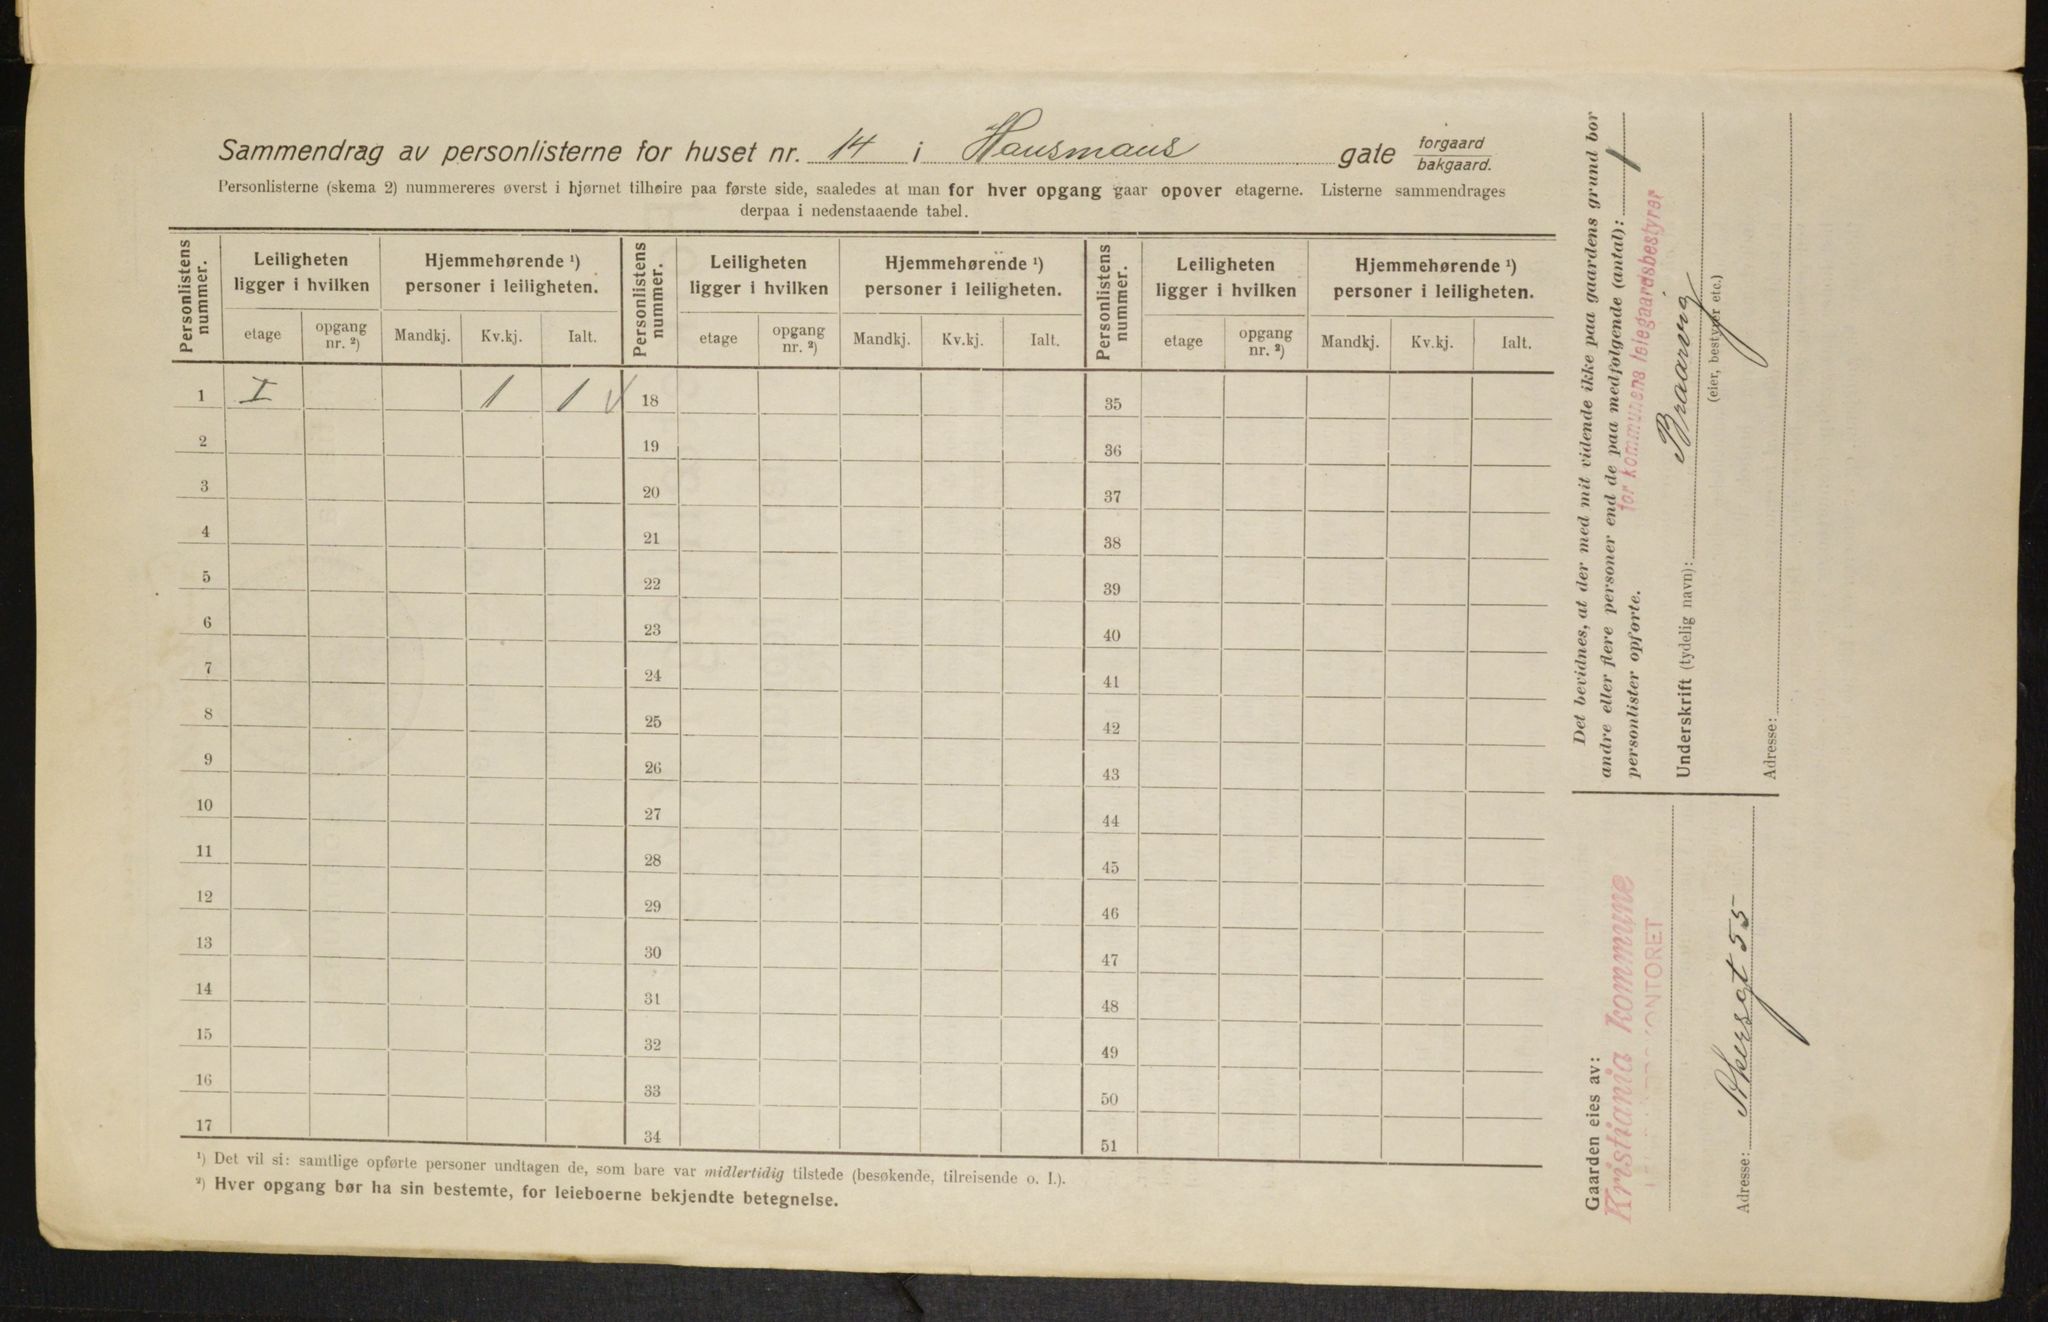 Sammendrag av personlisterne for huset nr. 14 i Hausmans gate forgaard bakgaard.
Personlisterne (skema 2) nummereres øverst i hjørnet tilhøire paa første side, saaledes at man for hver opgang gaar opover etagerne. Listerne sammendrages
derpaa i nedenstaaende tabel.
Personlistens nummer. Leiligheten ligger i hvilken Hjemmehørende ¹) personer i leiligheten. Personlistens nummer. Leiligheten ligger i hvilken Hjemmehørende ¹) personer i leiligheten. Personlistens nummer. Leiligheten ligger i hvilken Hjemmehørende ¹) personer i leiligheten.
etage opgang nr. ²) Mandkj. Kv.kj. Ialt. etage opgang nr. ²) Mandkj. Kv.kj. Ialt. etage opgang nr. ²) Mandkj. Kv.kj. Ialt.
1 I 1 1 √ 18 35
2 19 36
3 20 37
4 21 38
5 22 39
6 23 40
7 24 41
8 25 42
9 26 43
10 27 44
11 28 45
12 29 46
13 30 47
14 31 48
15 32 49
16 33 50
17 34 51
¹) Det vil si: samtlige opførte personer undtagen de, som bare var midlertidig tilstede (besøkende, tilreisende o. l.).
²) Hver opgang bør ha sin bestemte, for leieboerne bekjendte betegnelse.
Det bevidnes, at der med mit vidende ikke paa gaardens grund bor
andre eller flere personer end de paa medfølgende (antal): 1
personlister opførte.
for kommunens leiegaardsbestyrer
Underskrift (tydelig navn): Braarvig
(eier, bestyrer etc.)
Adresse:
Gaarden eies av:
Kristiania kommune
KONTORET
Adresse: Akersgt 55